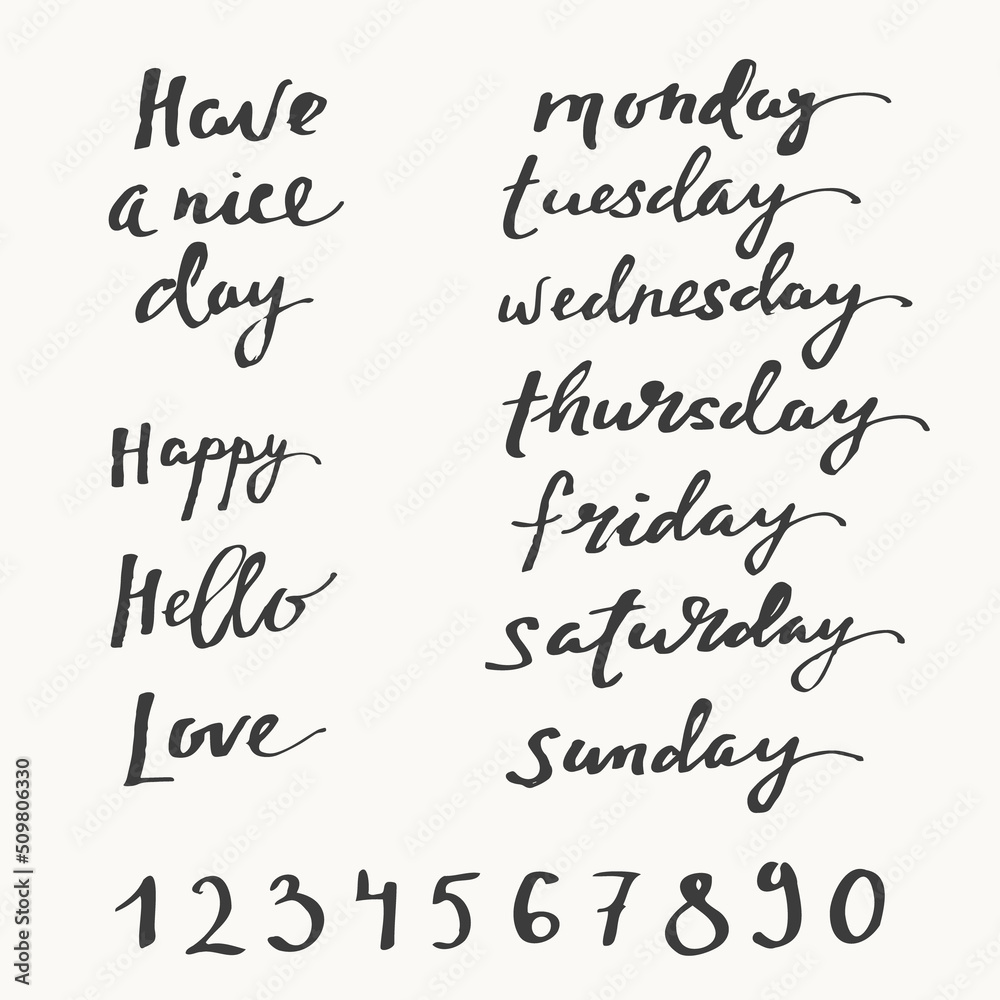 Have
a nice
day
Happy
Hello
Love
monday
tuesday
wednesday
thursday
friday
saturday
sunday
1 2 3 4 5 6 7 8 9 0
Adobe Stock | #509806330
Adobe Stock